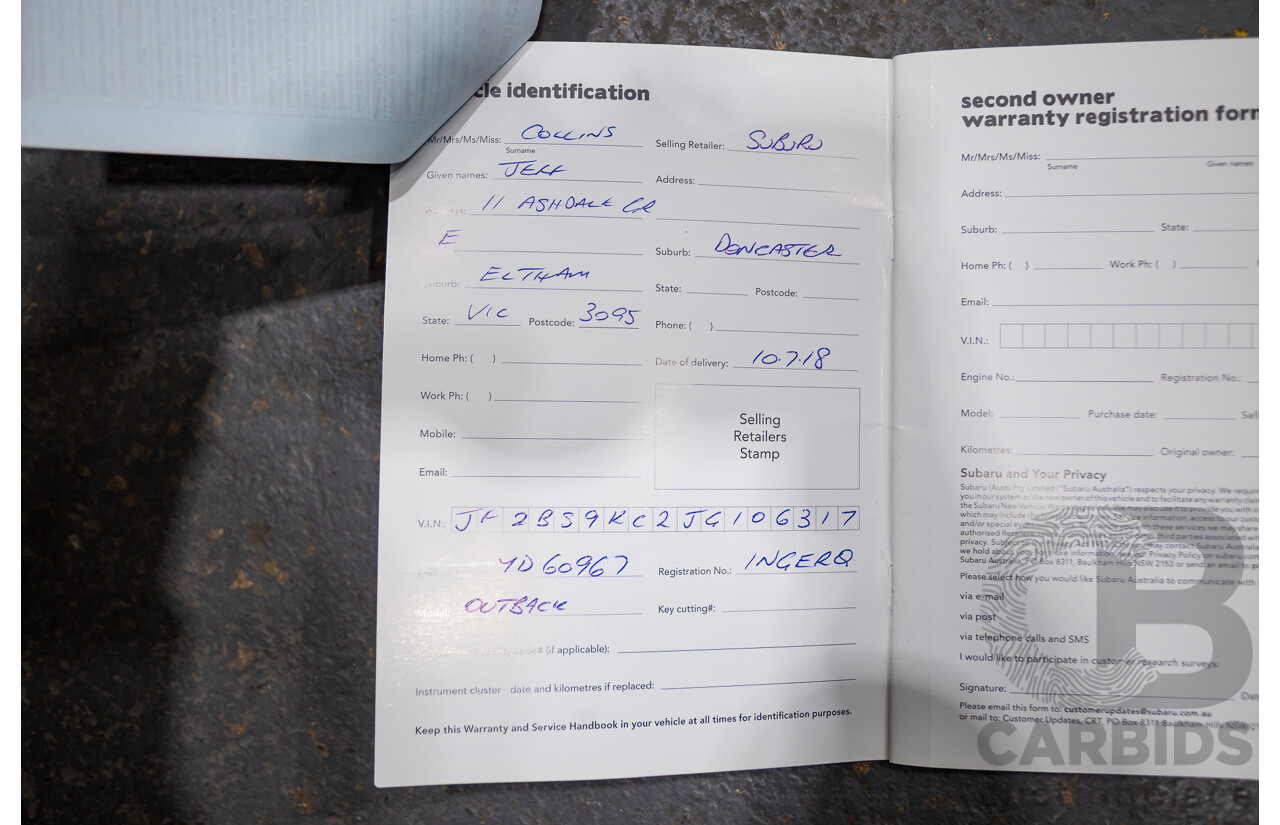 cle identification
Mr/Mrs/Ms/Miss: COLLINS
Surname
Given names: JEFF
11 ASHDALE CR
E
Suburb: ELTHAM
State: VIC Postcode: 3095
Home Ph: ( )
Work Ph: ( )
Mobile:
Email:
Selling Retailer: SUBURU
Address:
Suburb: DONCASTER
State: Postcode:
Phone: ( )
Date of delivery: 10.7.18
Selling
Retailers
Stamp
V.I.N.: JF2BS9KC2JG106317
YD60967 Registration No.: INGERQ
Model: OUTBACK Key cutting#:
(if applicable):
Instrument cluster - date and kilometres if replaced:
Keep this Warranty and Service Handbook in your vehicle at all times for identification purposes.
second owner
warranty registration form
Mr/Mrs/Ms/Miss:
Surname Given names:
Address:
Suburb: State:
Home Ph: ( ) Work Ph: ( )
Email:
V.I.N.:
Engine No.: Registration No.:
Model: Purchase date: Sell
Kilometres: Original owner:
Subaru and Your Privacy
Subaru (Aust) Pty Limited ("Subaru Australia") respects your privacy. We require
you in our system as the new owner of this vehicle and to facilitate any warranty claim
the Subaru New Vehicle
which may include
and/or special
authorised
privacy.
we hold about you. For more information, see our Privacy Policy
Subaru Australia, PO Box 8311, Baulkham Hills NSW 2153 or send an email to
Please select how you would like Subaru Australia to communicate with
via e-mail
via post
via telephone calls and SMS
I would like to participate in customer research surveys:
Signature: Dat
Please email this form to: customerupdates@subaru.com.au
or mail to: Customer Updates, CRT, PO Box 8311 Baulkham Hills NSW 21
CB
CARBIDS